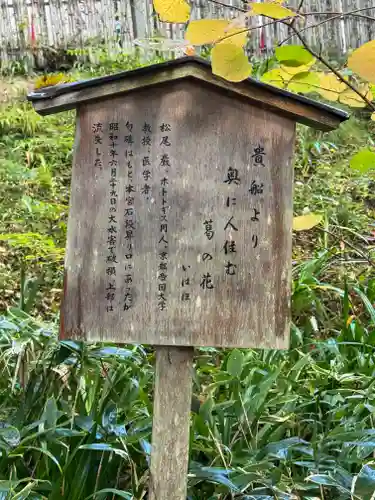 貴船より
奥に人住む
葛の花
いはほ
松尾巌、ホトトギス同人、京都帝国大学
教授・医学者
句碑はもと、本宮石段昇り口にあったが
昭和十年六月二十九日の大水害で破損、上部は
流失した。